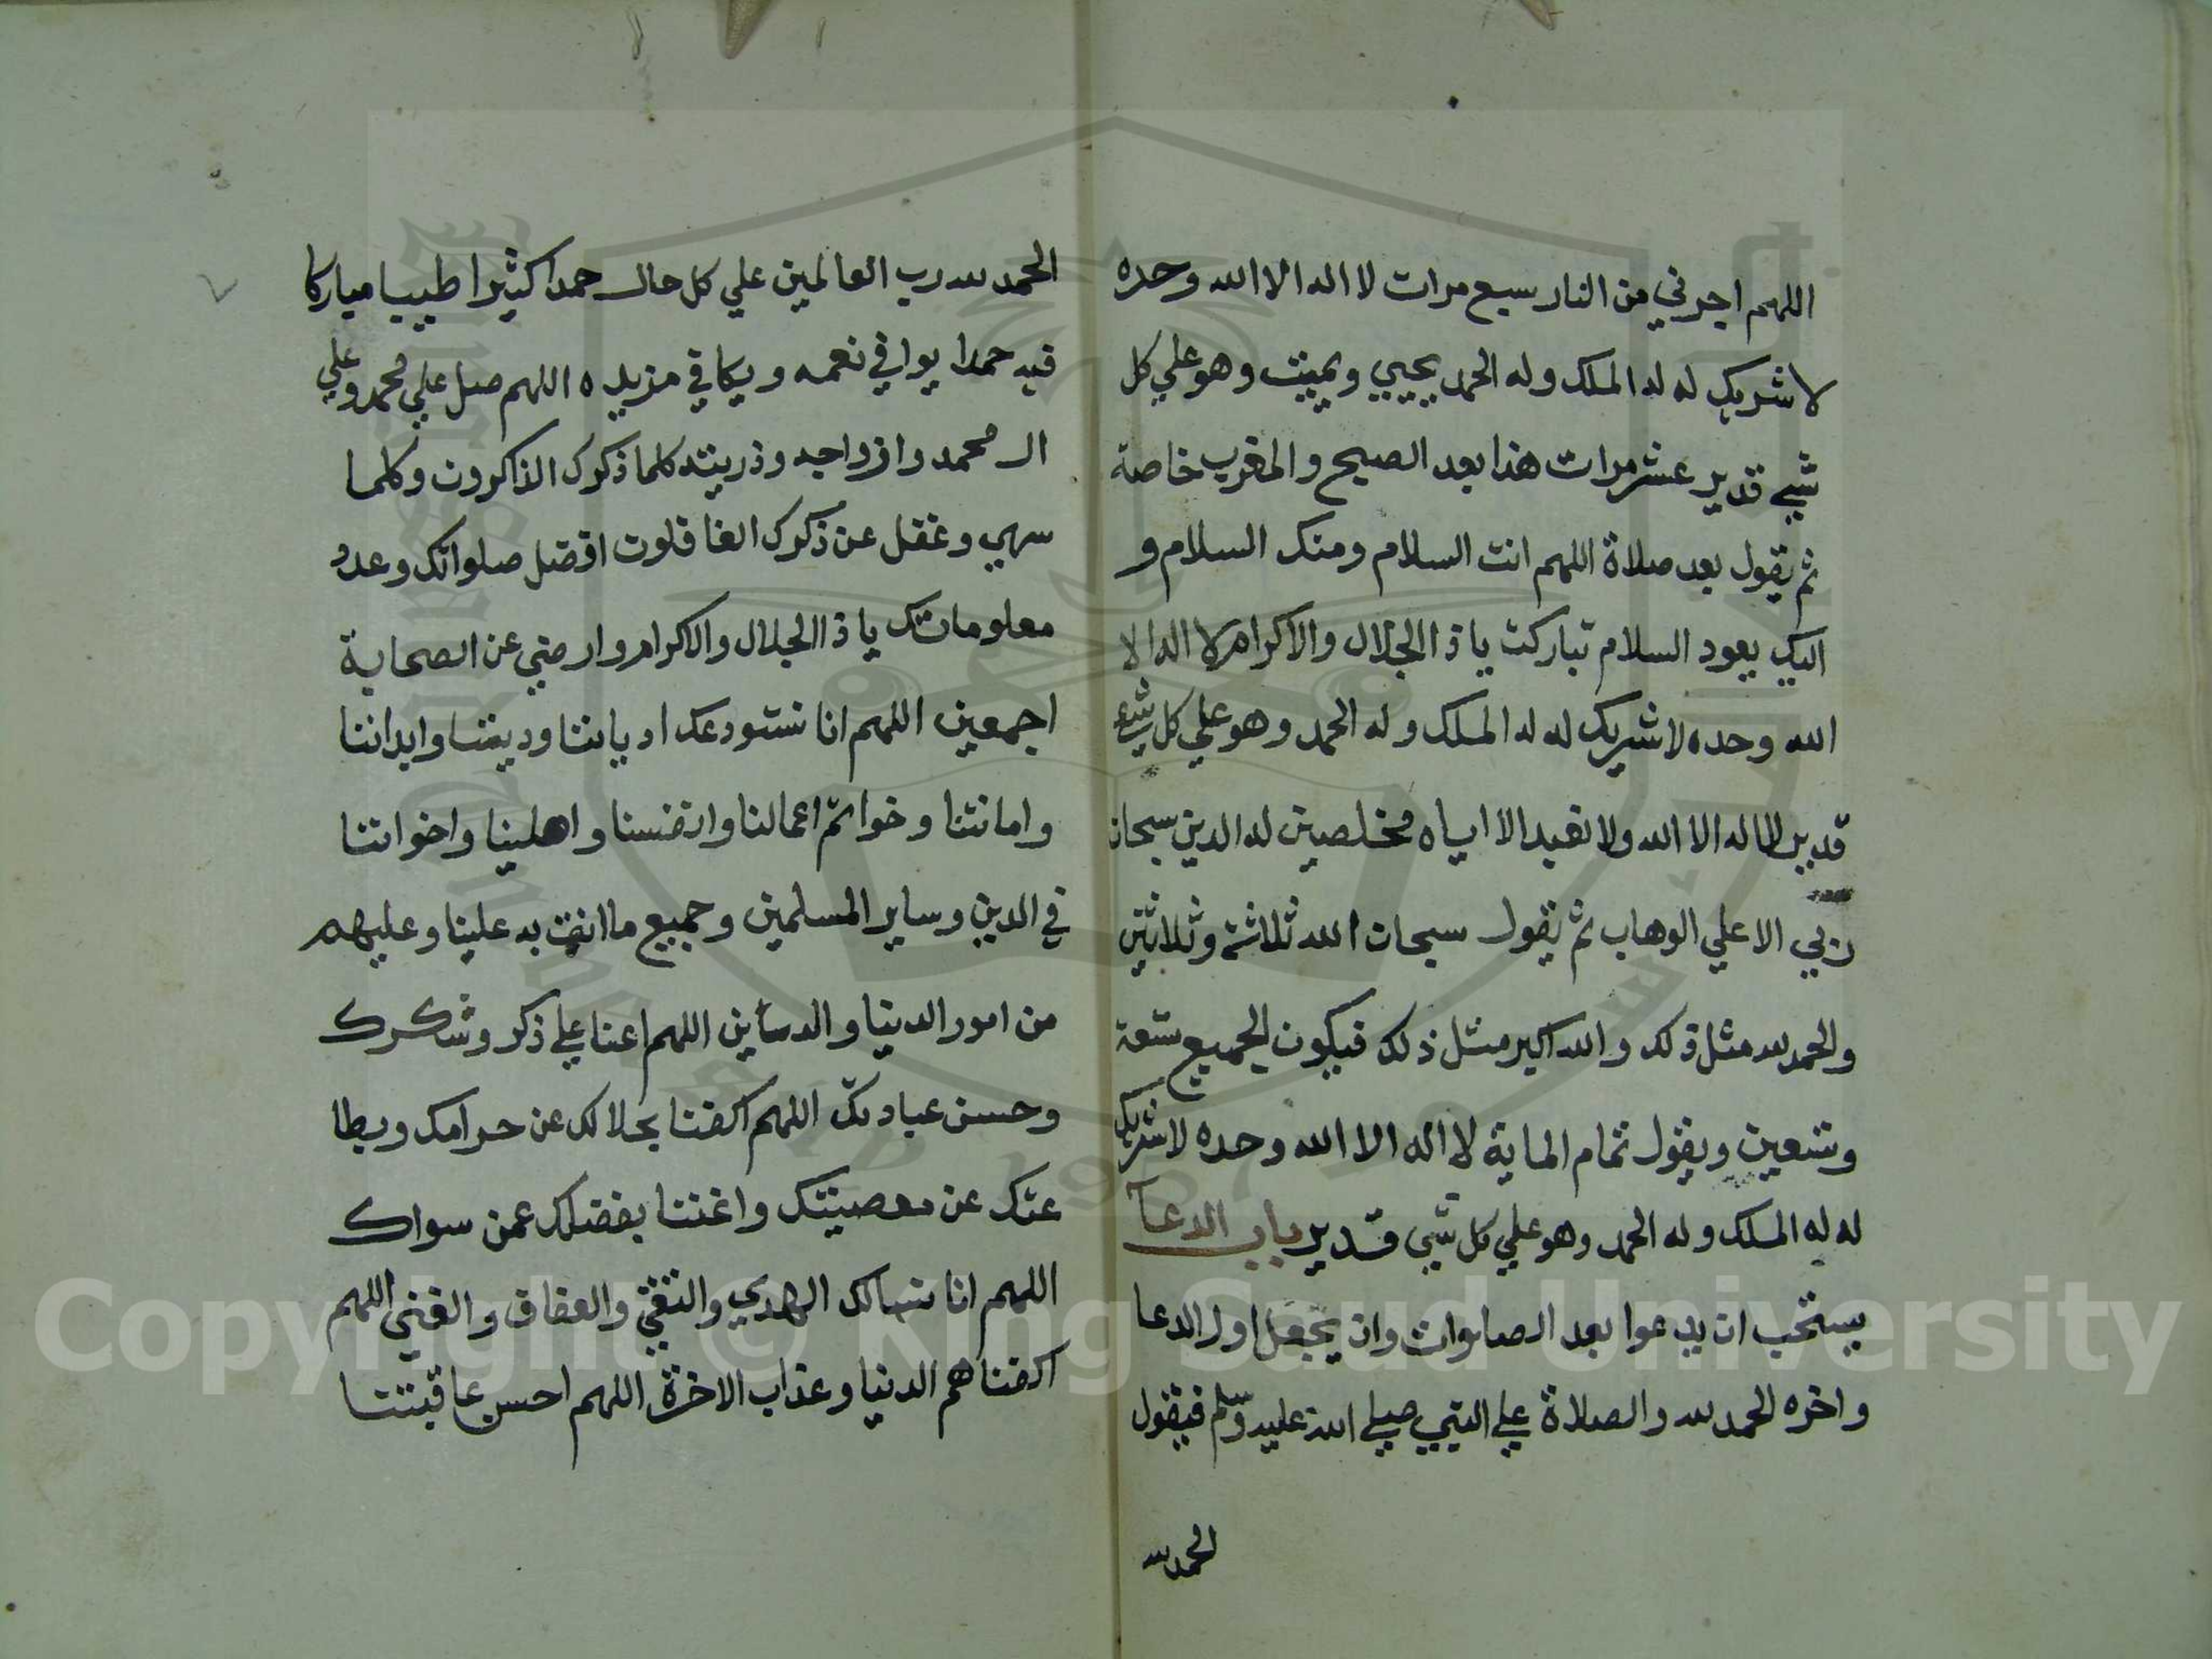 اللهم اجرني من النار سبع مرات لا اله الا الله وحده
لا شريك له له الملك وله الحمد يحيي ويميت وهو علي كل
شيء قدير عشر مرات هذا بعد الصبح والمغرب خاصة
ثم يقول بعد صلاة اللهم انت السلام ومنك السلام و
اليك يعود السلام تباركت يا ذا الجلال والاكرام لا اله الا
الله وحده لا شريك له له الملك وله الحمد وهو علي كل شيء
قدير لا اله الا الله ولا نعبد الا اياه مخلصين له الدين سبحان
ربي الاعلي الوهاب ثم تقول سبحان الله ثلاثة وثلاثين
والحمد لله مثل ذلك والله اكبر مثل ذلك فيكون الجميع تسعة
وتسعين ويقول تمام الماية لا اله الا الله وحده لا شريك
له له الملك وله الحمد وهو علي كل شي قدير باب الدعا
يستحب ان يدعوا بعد الصلوات وان يجعل اول الدعا
واخره الحمد لله والصلاة علي النبي صلي الله عليه وسلم فيقول
الحمد لله
الحمد لله رب العالمين علي كل حال حمدا كثيرا طيبا مباركا
فيه حمدا يوافي نعمه ويكافي مزيده اللهم صل علي محمد وعلي
ال محمد وازواجه وذريته كلما ذكرك الذاكرون وكلما
سهي وغفل عن ذكرك الغافلون افضل صلواتك وعدد
معلوماتك يا ذا الجلال والاكرام وارضي عن الصحابة
اجمعين اللهم انا نستودعك ادياننا وديننا وابداننا
وامانتنا وخواتم اعمالنا وانفسنا واهلينا واخواننا
في الدين وساير المسلمين وجميع ما انعمت به علينا وعليهم
من امور الدنيا والدين اللهم اعنا علي ذكر وشكرك
وحسن عبادتك اللهم اكفنا بحلالك عن حرامك وبطا
عتك عن معصيتك واغننا بفضلك عمن سواك
اللهم انا نسالك الهدي والتقي والعفاف والغني اللهم
اكفنا هم الدنيا وعذاب الاخرة اللهم احسن عاقبتنا
Copyright © King Saud University
1957